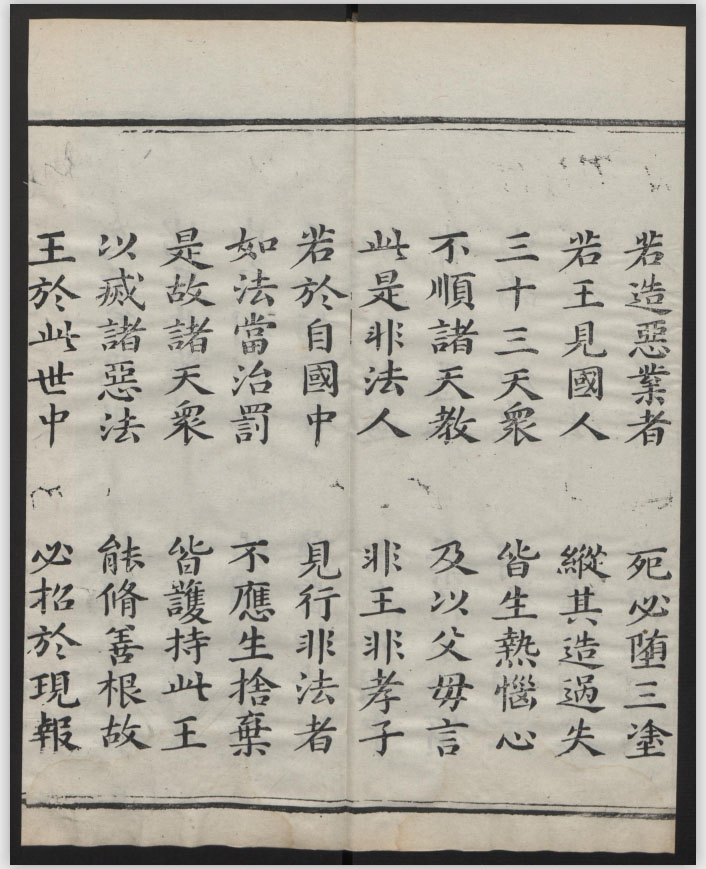 若造惡業者　死必墮三塗
若王見國人　縱其造過失
三十三天眾　皆生熱惱心
不順諸天教　及以父母言
此是非法人　非王非孝子
若於自國中　見行非法者
如法當治罰　不應生捨棄
是故諸天眾　皆護持此王
以滅諸惡法　能脩善根故
王於此世中　必招於現報